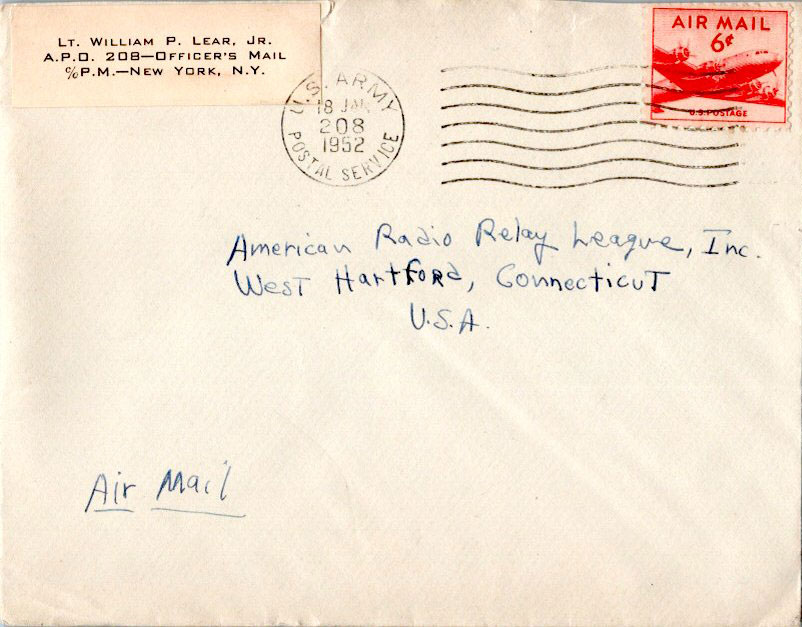 LT. WILLIAM P. LEAR, JR.
A.P.O. 208—OFFICER'S MAIL
℅P.M.—NEW YORK, N.Y.
U.S. ARMY
18 JAN
208
1952
POSTAL SERVICE
AIR MAIL
6¢
U.S. POSTAGE
American Radio Relay League, Inc.
West Hartford, Connecticut
U.S.A.
Air Mail